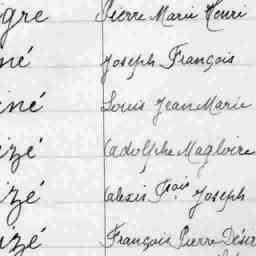 gre Pierre Marie Henri
né Joseph François
iné Louis Jean Marie
izé (adolphe Magloire
izé (alexis Fçois Joseph
izé François Pierre Désir